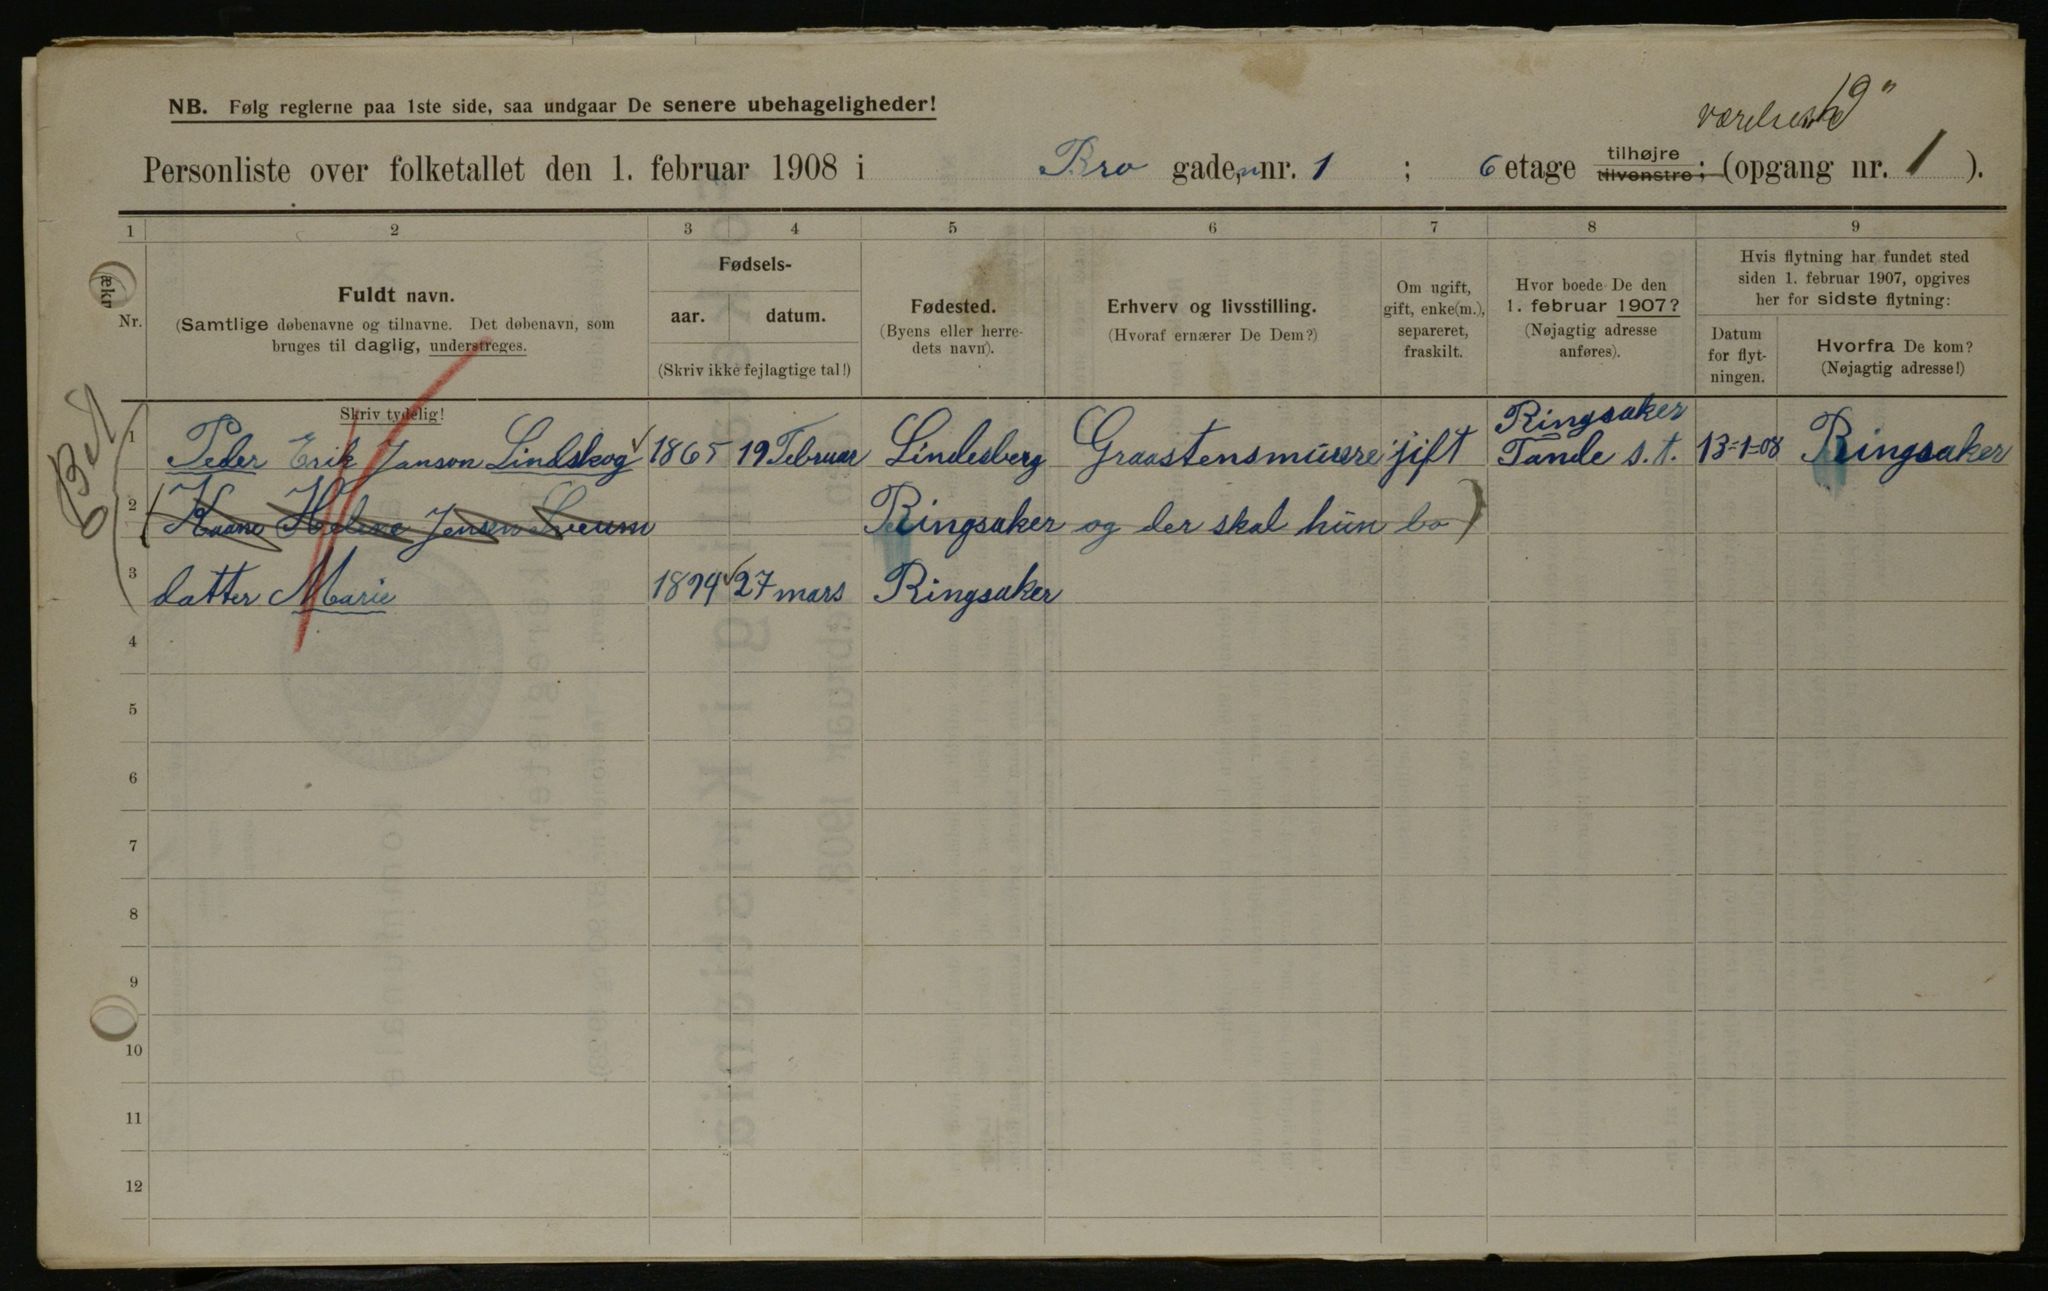 værelse 19"
NB. Følg reglerne paa 1ste side, saa undgaar De senere ubehageligheder!
Personliste over folketallet den 1. februar 1908 i Bro gaden, nr. 1 ; 6 etage tilhøjre tilvenstre ; (opgang nr. 1 ).
1 2 3 4 5 6 7 8 9
Nr.
Fuldt navn.
(Samtlige døbenavne og tilnavne. Det døbenavn, som
bruges til daglig, understreges.
Skriv tydelig!
Fødsels-
aar. datum.
(Skriv ikke fejlagtige tal!)
Fødested.
(Byens eller herre-
dets navn).
Erhverv og livsstilling.
(Hvoraf ernærer De Dem?)
Om ugift,
gift, enke(m.),
separeret,
fraskilt.
Hvor boede De den
1. februar 1907?
(Nøjagtig adresse
anføres).
Hvis flytning har fundet sted
siden 1. februar 1907, opgives
her for sidste flytning:
Datum
for flyt-
ningen.
Hvorfra De kom?
(Nøjagtig adresse!)
Ringsaker
1 Peder Erik Janson Lindskog 1865 19 Februar Lindesberg Graastensmurere jift Tande s.t. 13-1-08 Ringsaker
2 ( Helene Jensen Sveum Ringsaker og der skal hun bo )
3 datter Marie 1894 27 mars Ringsaker
4
5
6
7
8
9
10
11
12